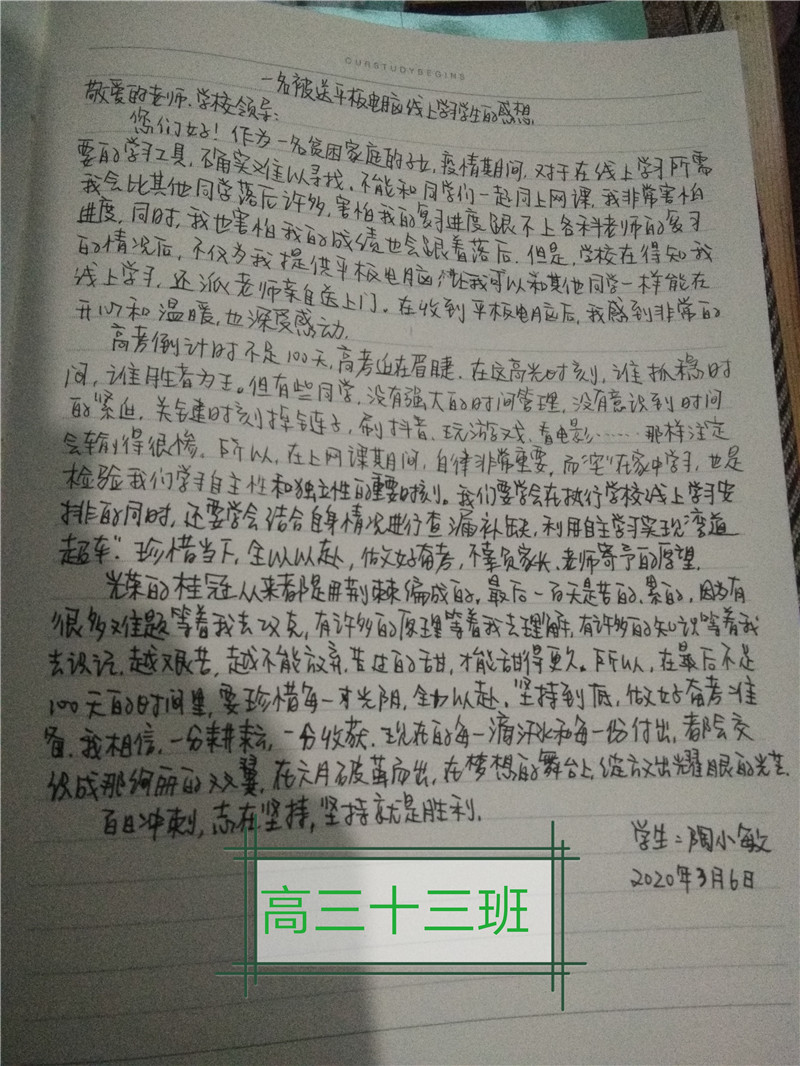 OURSTUDYBEGINS
一名被送平板电脑线上学习学生的感想
敬爱的老师、学校领导：
您们好！作为一名贫困家庭的子女，疫情期间，对于在线上学习所需
要的学习工具，不确实难以寻找。不能和同学们一起同上网课，我非常害怕
我会比其他同学落后许多，害怕我的复习进度跟不上各科老师的复习
进度，同时，我也害怕我的成绩也会跟着落后。但是，学校在得知我
的情况后，不仅为我提供平板电脑，让我可以和其他同学一样能在
线上学习，还派老师亲自送上门。在收到平板电脑后，我感到非常的
开心和温暖，也深受感动。
高考倒计时不足100天，高考迫在眉睫。在这高光时刻，谁抓稳时
间，谁胜者为王。但有些同学，没有强大的时间管理，没有意识到时间
的紧迫，关键时刻掉链子，刷抖音、玩游戏、看电影……那样注定
会输得很惨。所以，在上网课期间，自律非常重要，而宅在家中学习，也是
检验我们学习自主性和独立性的重要时刻。我们要学会在执行学校线上学习安
排的同时，还要学会结合自身情况进行查漏补缺，利用自主学习实现"弯道
超车"。珍惜当下，全以以赴，做好备考，不辜负家长、老师寄予的愿望。
光荣的桂冠从来都是用荆棘编成的。最后一百天是苦的、累的，因为有
很多难题等着我去攻克，有许多的原理等着我去理解，有许多的知识等着我
去识记，越艰苦，越不能放弃。苦过的甜，才能甜得更久。所以，在最后不足
100天的时间里，要珍惜每一寸光阴，全力以赴、坚持到低，做好备考准
备。我相信，一分耕耘，一分收获。现在的每一滴汗水和每一份付出，都会交
织成那绚丽的双翼，在六月破茧而出，在梦想的舞台上绽放出耀眼的光芒。
百日冲刺，志在坚持，坚持就是胜利。
学生：陶小敏
2020年3月6日
高三十三班